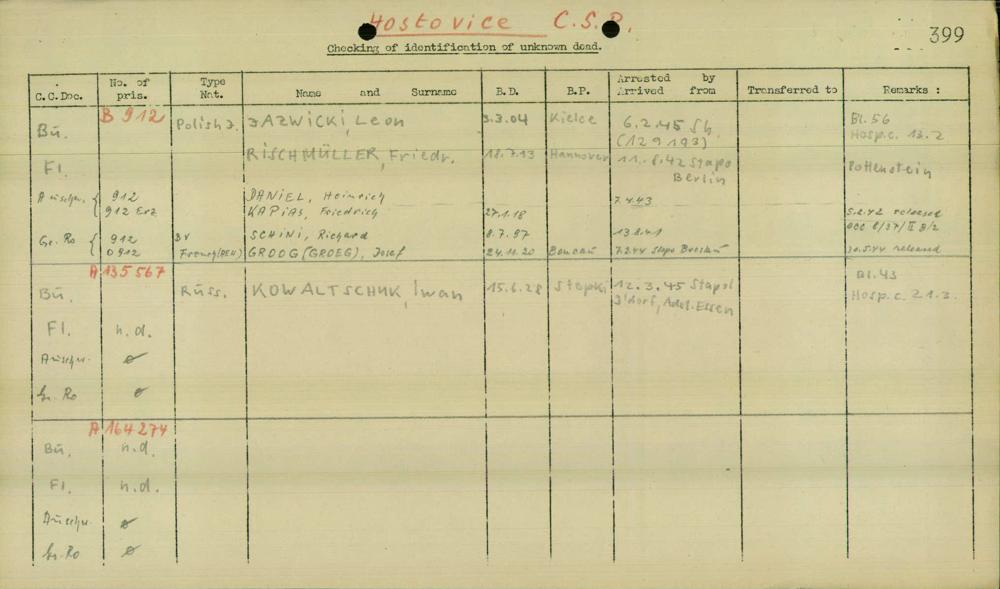 Hostovice C.S.R.
399
Checking of identification of unknown dead.
C.C.Doc. No. of pris. Type Nat. Name and Surname B.D. B.P. Arrested by Arrived from Transferred to Remarks :
B 912
Bu. Polish J. JAZWICKI, Leon 3.3.04 Kielce 6.2.45 (129193) Bl. 56 Hosp.c. 13.2
Fl. RISCHMÜLLER, Friedr. 18.7.13 Hannover 11.8.42 Stapo Berlin Pottenstein
912 DANIEL, Heinrich 7.4.43
912 Erz KAPIAS, Friedrich 27.1.18 5.2.42 released
Gr. Ro 912 BV SCHINI, Richard 8.7.97 13.8.41
0912 GROOG (GROEG), Josef 24.11.20 7.2.44 Stapo 30.5.44 released
A 135567
Bu. Russ. KOWALTSCHUK, Iwan 15.6.28 Stepki 12.3.45 Stapol D'dorf, Adst. Essen Bl. 43 Hosp.c. 21.3.
Fl. n.d.
Auschw. ø
Gr. Ro ø
A 164274
Bu. n.d.
Fl. n.d.
Auschw. ø
Gr. Ro ø